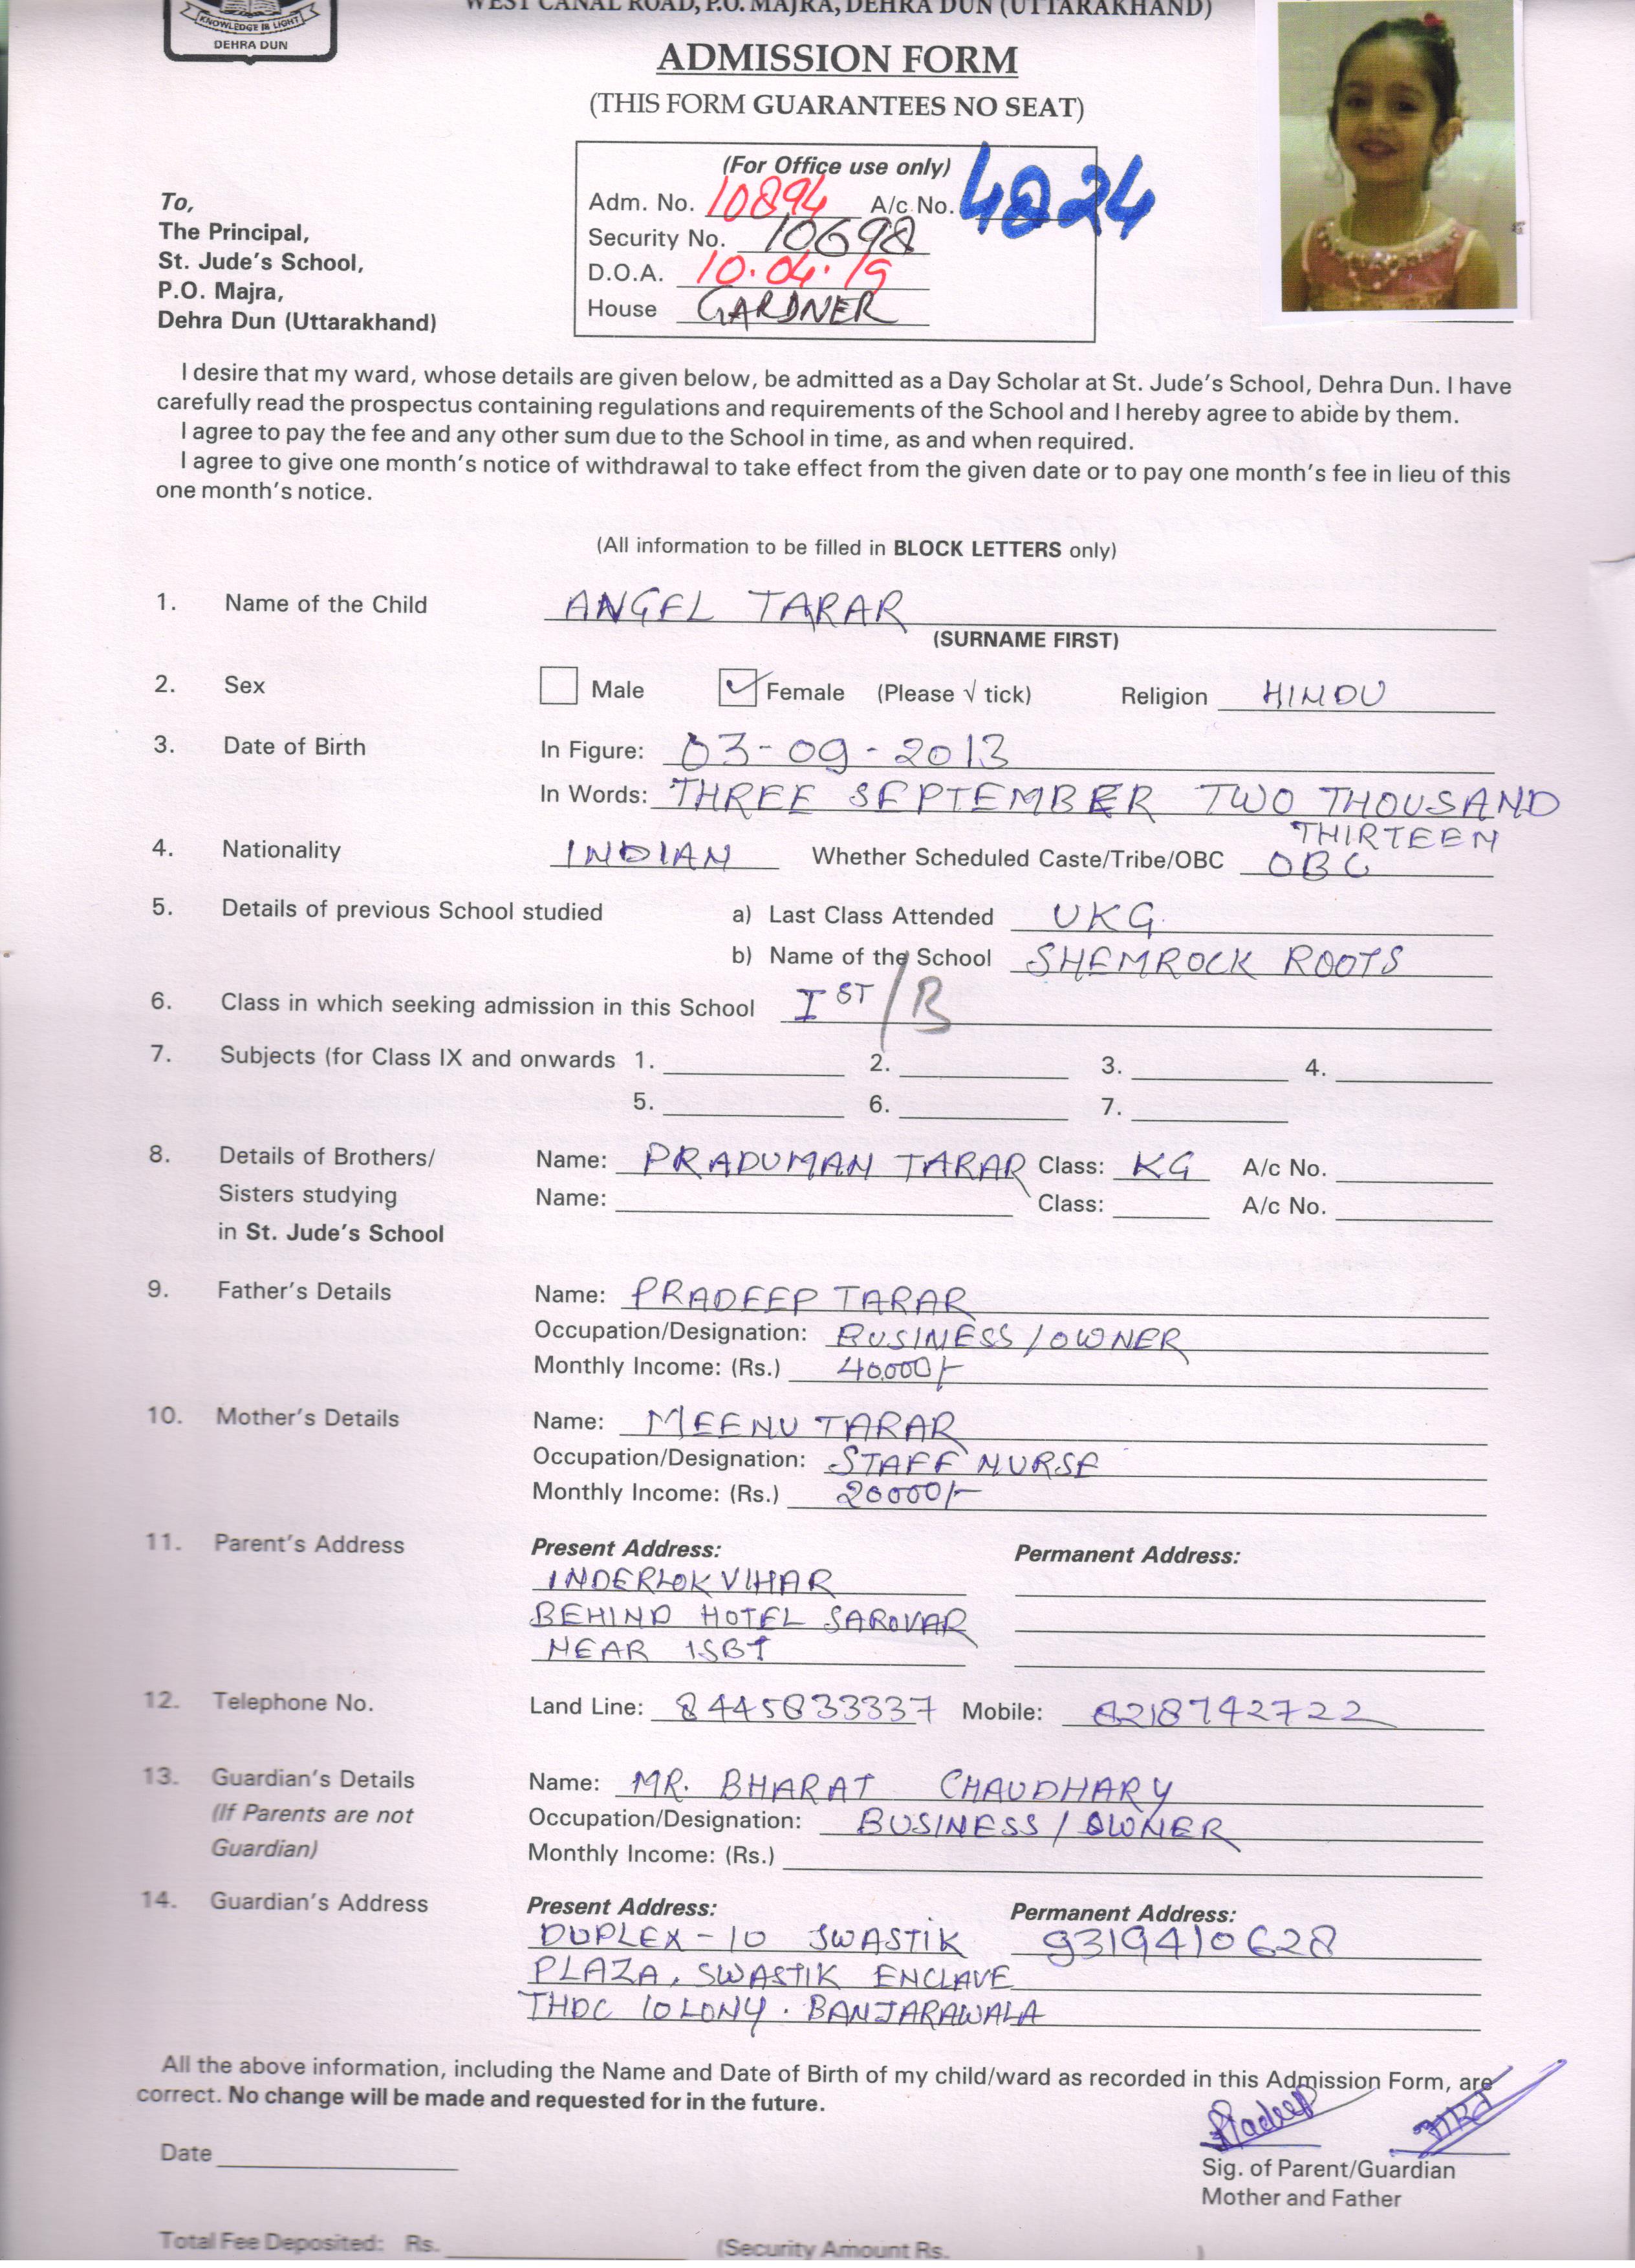 WEST CANAL ROAD, P.O. MAJRA, DEHRA DUN (UTTARAKHAND)
KNOWLEDGE IS LIGHT
DEHRA DUN
ADMISSION FORM
(THIS FORM GUARANTEES NO SEAT)
(For Office use only)
Adm. No. 10894 A/c No. 4824
Security No. 10698
D.O.A. 10.04.19
House GARDNER
To,
The Principal,
St. Jude's School,
P.O. Majra,
Dehra Dun (Uttarakhand)
I desire that my ward, whose details are given below, be admitted as a Day Scholar at St. Jude's School, Dehra Dun. I have
carefully read the prospectus containing regulations and requirements of the School and I hereby agree to abide by them.
I agree to pay the fee and any other sum due to the School in time, as and when required.
I agree to give one month's notice of withdrawal to take effect from the given date or to pay one month's fee in lieu of this
one month's notice.
(All information to be filled in BLOCK LETTERS only)
1. Name of the Child ANGEL TARAR
(SURNAME FIRST)
2. Sex Male ✓ Female (Please √ tick) Religion HINDU
3. Date of Birth In Figure: 03-09-2013
In Words: THREE SEPTEMBER TWO THOUSAND
THIRTEEN
4. Nationality INDIAN Whether Scheduled Caste/Tribe/OBC OBC
5. Details of previous School studied a) Last Class Attended UKG
b) Name of the School SHEMROCK ROOTS
6. Class in which seeking admission in this School I ST / B
7. Subjects (for Class IX and onwards 1. 2. 3. 4.
5. 6. 7.
8. Details of Brothers/ Name: PRADUMAN TARAR Class: KG A/c No.
Sisters studying Name: Class: A/c No.
in St. Jude's School
9. Father's Details Name: PRADEEP TARAR
Occupation/Designation: BUSINESS / OWNER
Monthly Income: (Rs.) 40,000/-
10. Mother's Details Name: MEENU TARAR
Occupation/Designation: STAFF NURSE
Monthly Income: (Rs.) 20000/-
11. Parent's Address Present Address: Permanent Address:
INDERLOK VIHAR
BEHIND HOTEL SAROVAR
NEAR ISBT
12. Telephone No. Land Line: 8445833337 Mobile: 8218742722
13. Guardian's Details Name: MR. BHARAT CHAUDHARY
(If Parents are not Occupation/Designation: BUSINESS / OWNER
Guardian) Monthly Income: (Rs.)
14. Guardian's Address Present Address: Permanent Address:
DUPLEX-10 SWASTIK 9319410628
PLAZA, SWASTIK ENCLAVE
THDC COLONY. BANJARAWALA
All the above information, including the Name and Date of Birth of my child/ward as recorded in this Admission Form, are
correct. No change will be made and requested for in the future.
Pradeep
Date
Sig. of Parent/Guardian
Mother and Father
Total Fee Deposited: Rs. (Security Amount Rs. )